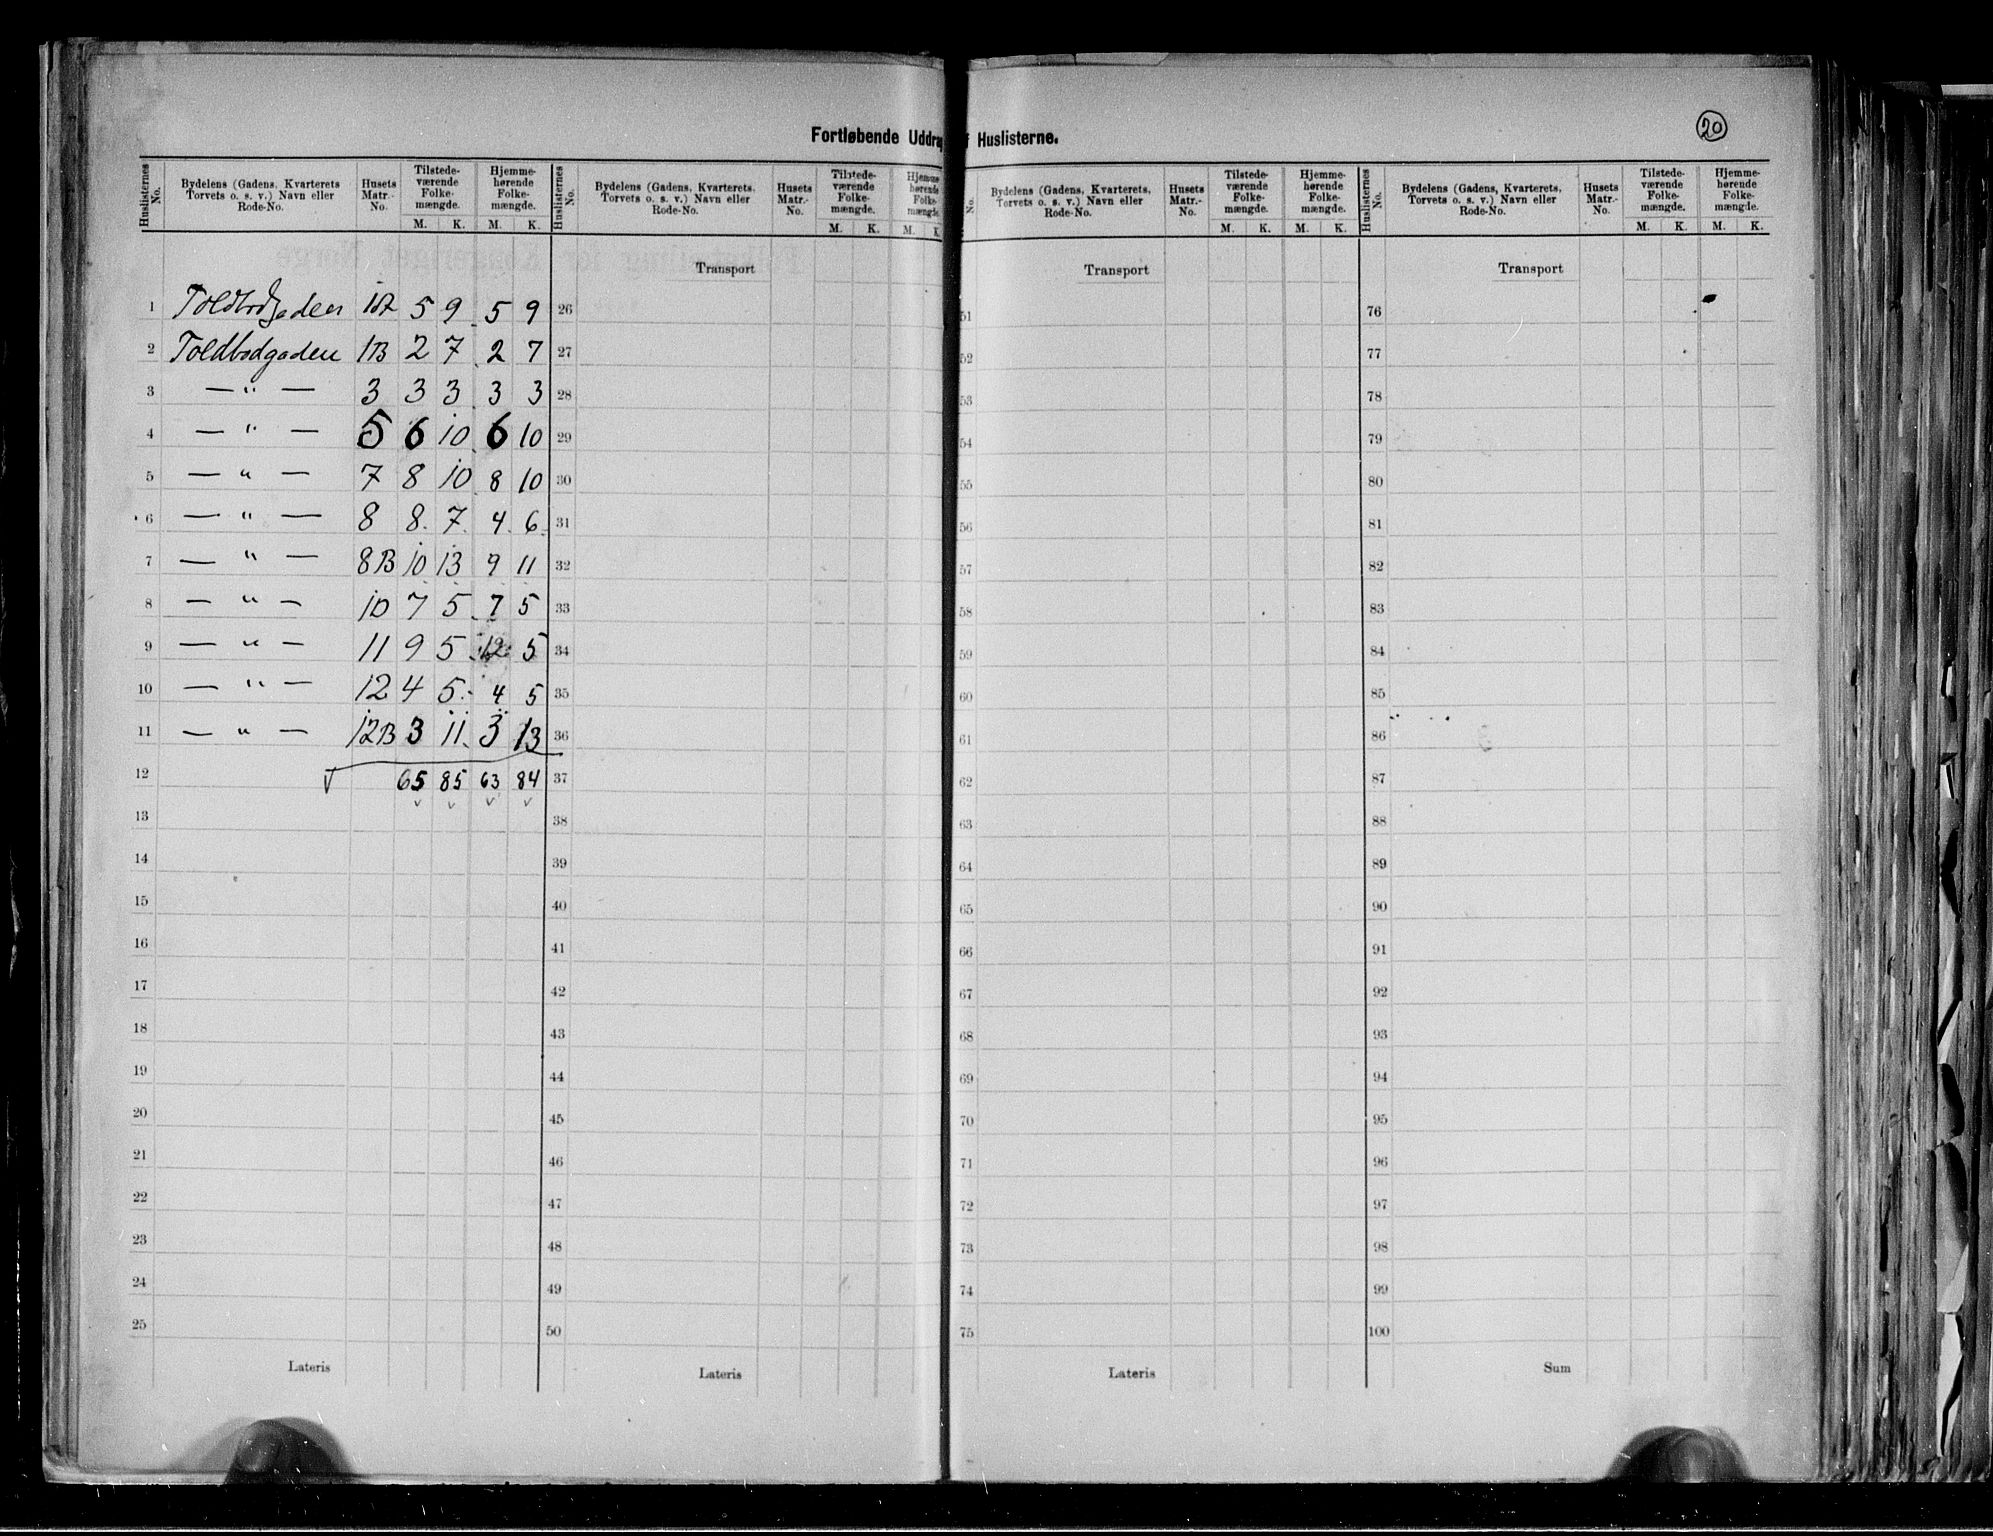 Fortløbende Uddrag f Huslisterne.
20
Huslisternes No. Bydelens (Gadens, Kvarterets Torvets o. s. v.) Navn eller Rode-No. Husets Matr.-No. Tilstedeværende Folkemængde. M. K. Hjemmehørende Folkemængde. M. K.
Huslisternes No. Bydelens (Gadens, Kvarterets, Torvets o. s. v.) Navn eller Rode-No. Husets Matr.-No. Tilstedeværende Folkemængde. M. K. Hjemmehørende Folkemængde. M. K
No. Bydelens (Gadens, Kvarterets, Torvets o. s. v.) Navn eller Rode-No. Husets Matr.-No. Tilstedeværende Folkemængde. M. K. Hjemmehørende Folkemængde. M. K.
Huslisternes No. Bydelens (Gadens, Kvarterets, Torvets o. s. v.) Navn eller Rode-No. Husets Matr.-No. Tilstedeværende Folkemængde. M. K. Hjemmehørende Folkemængde. M. K.
Transport Transport Transport
1 Toldbodgaden 5 9 5 9 26 51 76
2 Toldbodgaden 1B 2 7 2 7 27 52 77
3 — " — 3 3 3 3 3 28 53 78
4 — " — 5 6 10 6 10 29 54 79
5 — " — 7 8 10 8 10 30 55 80
6 — " — 8 8 7 4 6 31 56 81
7 — " — 8B 10 13 9 11 32 57 82
8 — " — 10 7 5 7 5 33 58 83
9 — " — 11 9 5 12 5 34 59 84
10 — " — 12 4 5 4 5 35 60 85
11 — " — 12B 3 11 3 13 36 61 86
12 65 85 63 84 37 62 87
13 38 63 88
14 39 64 89
15 40 65 90
16 41 66 91
17 42 67 92
18 43 68 93
19 44 69 94
20 45 70 95
21 46 71 96
22 47 72 97
23 48 73 98
24 49 74 99
25 50 75 100
Lateris Lateris Lateris Sum